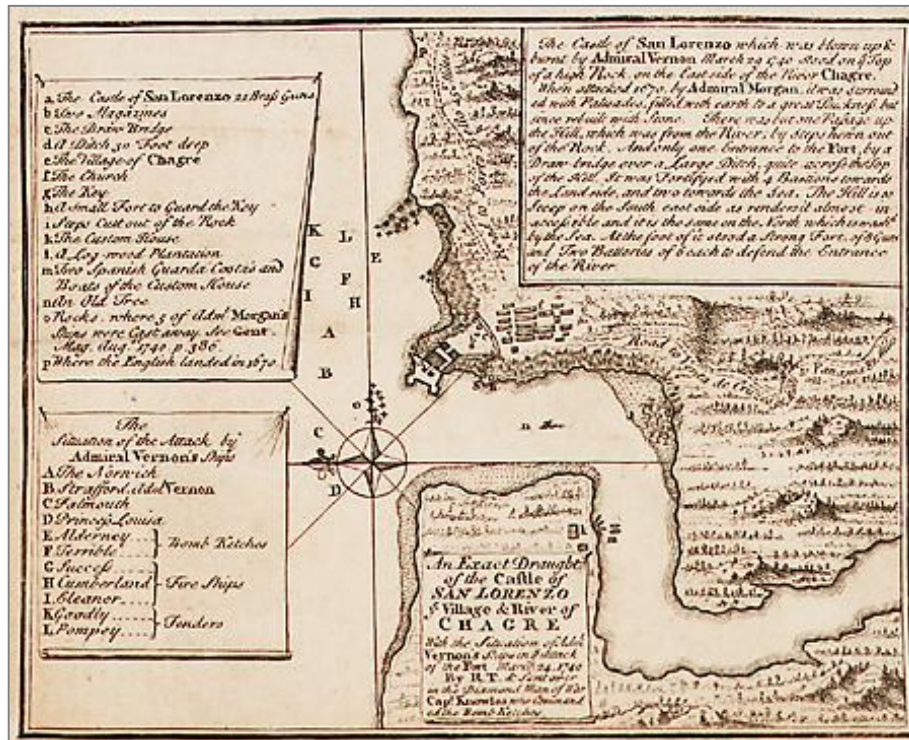 a The Castle of San Lorenzo 22 Brass Guns
b Two Magazines
c The Draw Bridge
d A Ditch 30 Foot deep
e The Village of Chagre
f The Church
g The Key
h A Small Fort to Guard the Key
i Steps Cut out of the Rock
k The Custom House
l A Log-wood Plantation
m Two Spanish Guarda Costa's and
Boats of the Custom House
n An Old Tree
o Rocks where 5 of Adml Morgan's
Ships were Cast away. See Gent.
Mag. Aug. 1740 p 386
p Where the English landed in 1670
The Castle of San Lorenzo which was blown up &
burnt by Admiral Vernon March 29 1740 stood on ye Top
of a high Rock on the East side of the River Chagre.
When attacked 1670, by Admiral Morgan, it was surround
ed with Palisades, filled with earth to a great thickness but
since rebuilt with Stone. There was but one Passage up
the Hill, which was from the River, by Steps hewn out
of the Rock. And only one entrance to the Fort, by a
Draw bridge over a Large Ditch, quite across the Top
of the Hill. It was Fortifyed with 4 Bastions towards
the Land side, and two towards the Sea. The Hill is so
Steep on the South east side as renders it almost in
accessible and it is the same on the North which is wash'd
by the Sea. At the foot of it stood a Strong Fort, of 8 Guns
and Two Batteries of 6 each to defend the Entrance
of the River
P
K
L
E
G
F
I
H
A
B
C
D
o
n
Road to
The
Situation of the Attack by
Admiral Vernon's Ships
A The Norwich
B Strafford, Adml Vernon
C Falmouth
D Princess Louisa
E Alderney
F Terrible
Bomb Ketches
G Success
H Cumberland
I Eleanor
Fire Ships
K Goodly
L Pompey
Tenders
An Exact Draught
of the Castle of
SAN LORENZO
ye Village & River of
CHAGRE
With the Situation of Adml
Vernon's Ships in ye Attack
of the Fort March 24. 1740
By R T. & Sent over
in the Diamond Man of War
Capt Knowles who Command
ed the Bomb Ketches